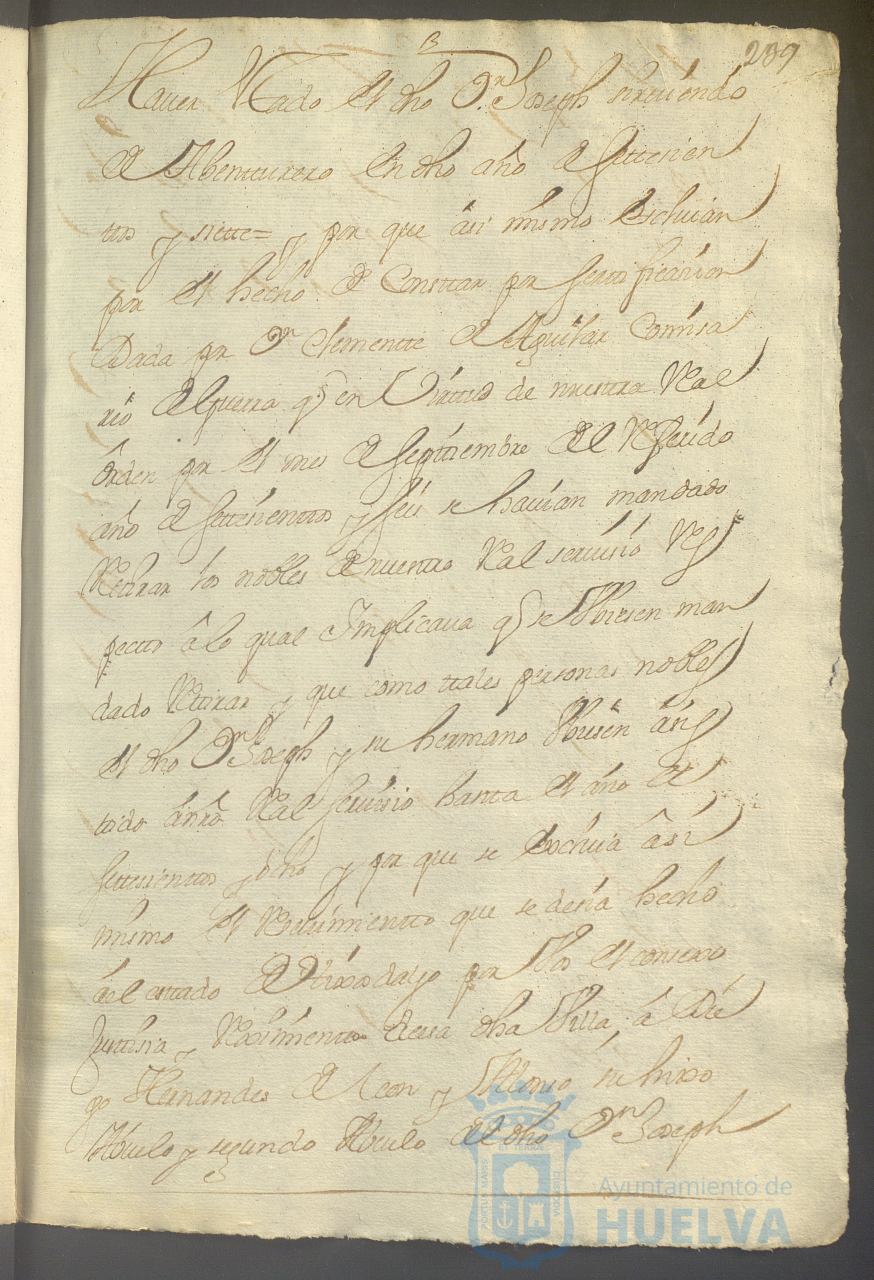 B
209
Haver estado el dho Dn. Joseph sirviendo
de Abentturero en dho año de settesien
tos y siette= y por que asi mismo se excluian
por el hecho de Consttar por sertificazion
Dada por Dn Clementte de Aguilar Comisa
rio de guerra q en Virtud de nuestra Real
orden por el mes de septtiembre del Referido
año de settesienttos y seis se havian mandado
Rettirar los nobles de nuestro Real servisio Res
pectto a lo qual Implicava q se Ubiesen man
dado Rettirar y que como ttales personas nobles
el dho Dn Joseph y su hermano Ubiesen asis
tido a nro Real servisio hasta el año de
settesienttos y ocho y por que se excluia asi
mismo el Resivimientto que se desia hecho
al esttado de Hixodalgo por Vos el conzexo
Justtisia y Reximientto de esa dha Villa, a Die
go Hernandes de Leon y Alonso su hixo
Abuelo y segundo Abuelo del dho Dn Joseph
PORTUS MARIS
ET TERRAE
CUSTODIA
Ayuntamiento de
HUELVA